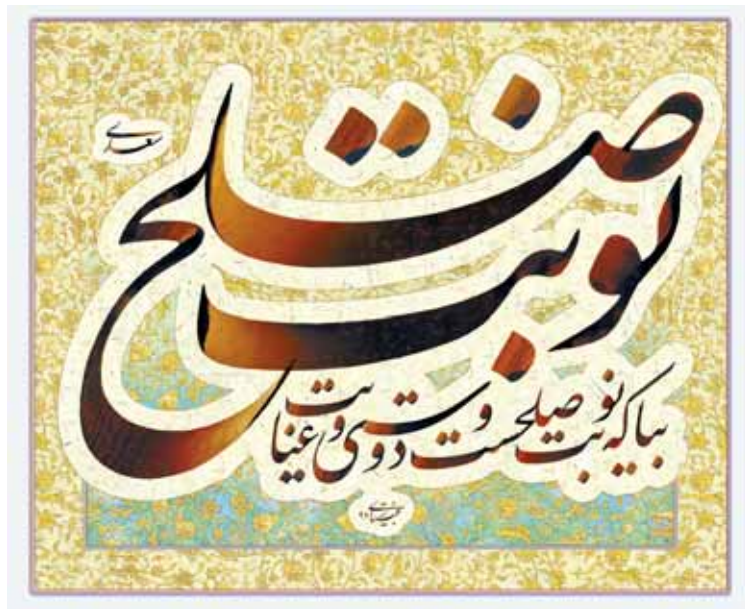 سعدی
نوبت صلح
بیا که نوبت صلحست و دوستی و عنایت